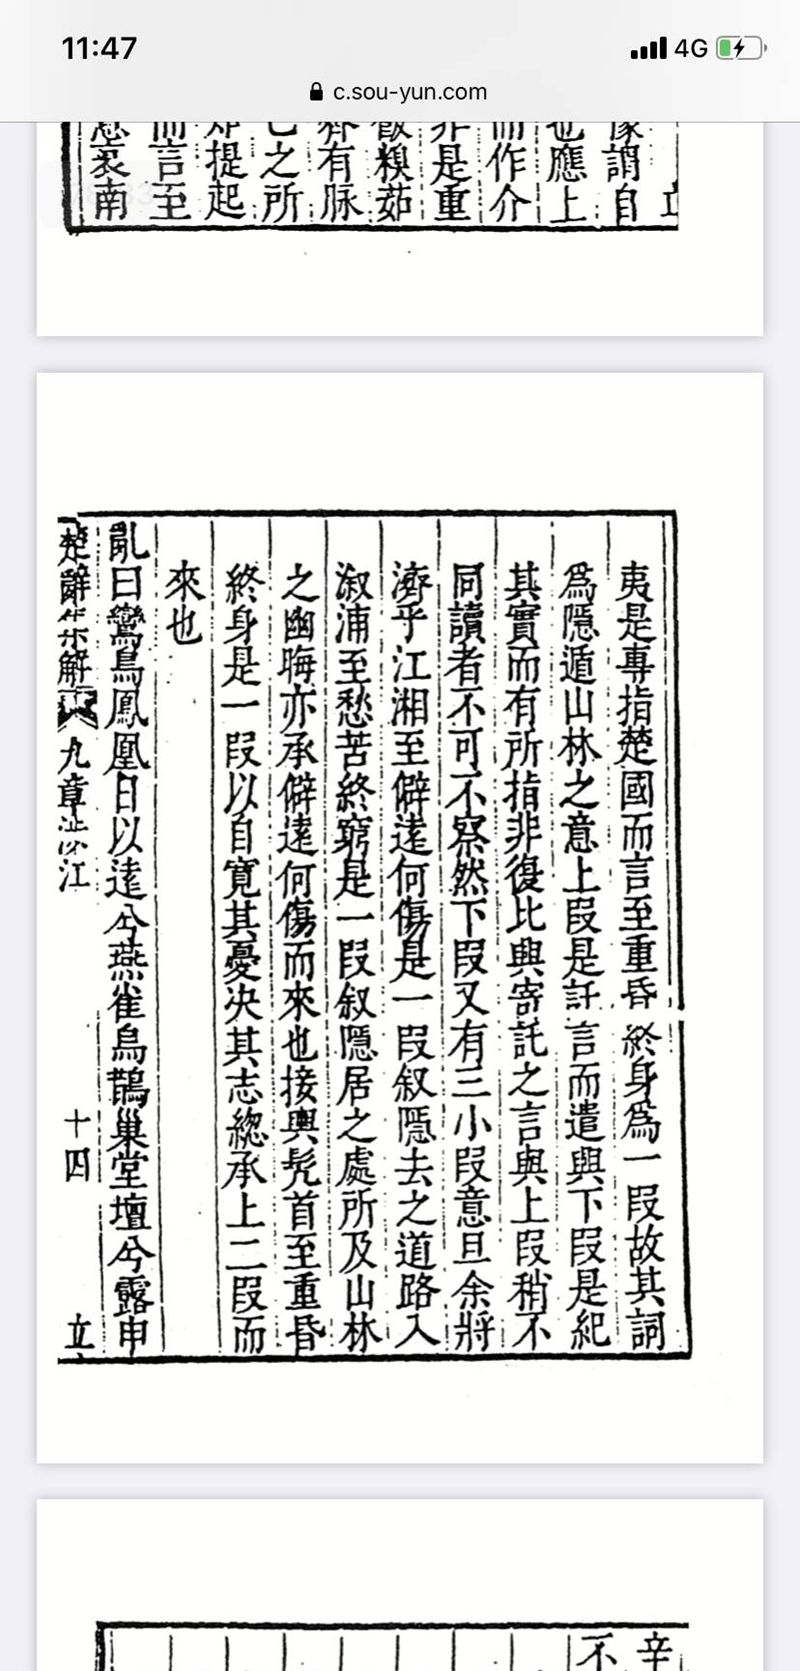 11:47
4G
c.sou-yun.com
謂自
應上
作介
是重
糗茹
有脉
之所
提起
言至
哀南
夷是專指楚國而言至重昏終身爲一段故其詞
爲隱遁山林之意上段是託言而遣與下段是紀
其實而有所指非復比興寄託之言與上段稍不
同讀者不可不察然下段又有三小段意旦余將
濟乎江湘至僻遠何傷是一段叙隱去之道路入
溆浦至愁苦終窮是一段叙隱居之處所及山林
之幽晦亦承僻遠何傷而來也接輿髡首至重昏
終身是一段以自寛其憂决其志總承上二段而
來也
亂曰鸞鳥鳳凰日以逺兮燕雀烏鵲巢堂壇兮露申
楚辭集解 九章涉江 十四
辛
不